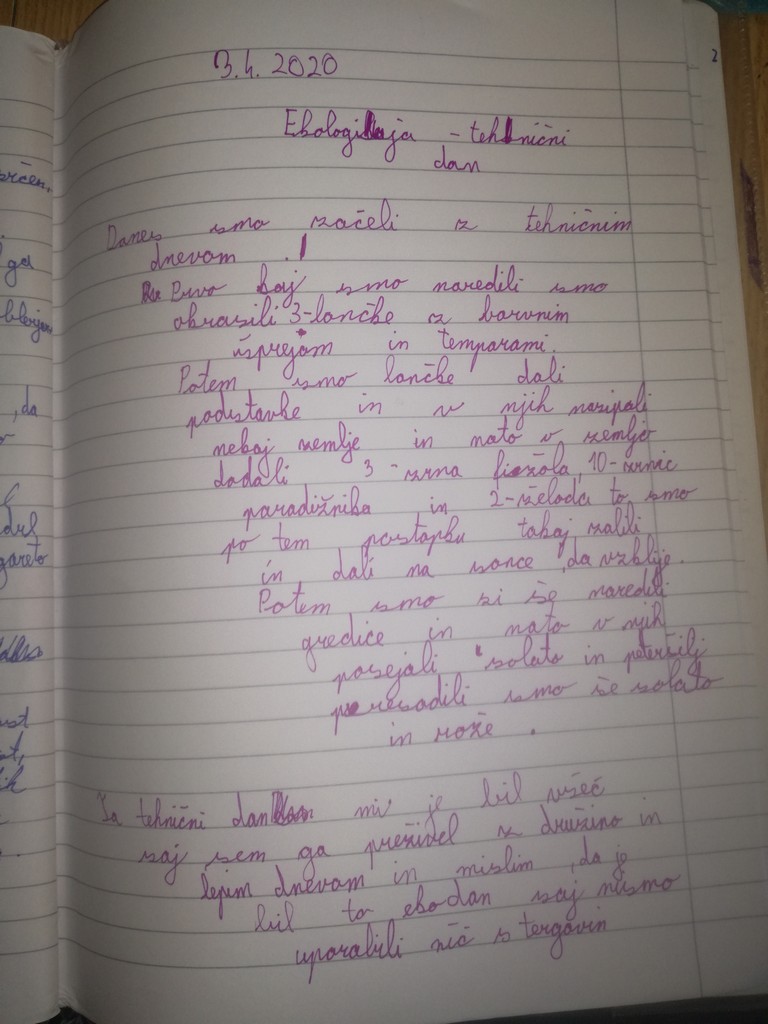 2
3.4. 2020
Ekologija - tehnični
dan
Danes smo začeli z tehničnim
dnevom .!
Prvo kaj smo naredili smo
okrasili 3-lončke z barvnim
šprejom in temparami.
Potem smo lončke dali
podstavke in v njih nasipali
nekaj zemlje in nato v zemljo
dodali 3-zrna fižola, 10-zrnic
paradižnika in 2-želoda to smo
po tem postopku takoj zalili
in dali na sonce, da vzklije.
Potem smo si še naredili
gredice in nato v njih
posejali solato in peteršilj
presadili smo še solato
in rože .
Ta tehnični dan mi je bil všeč
saj sem ga preživel z družino in
lepim dnevom in mislim, da je
bil to ekodan saj nismo
uporabili nič s tergovin
prčen,
ga
, da